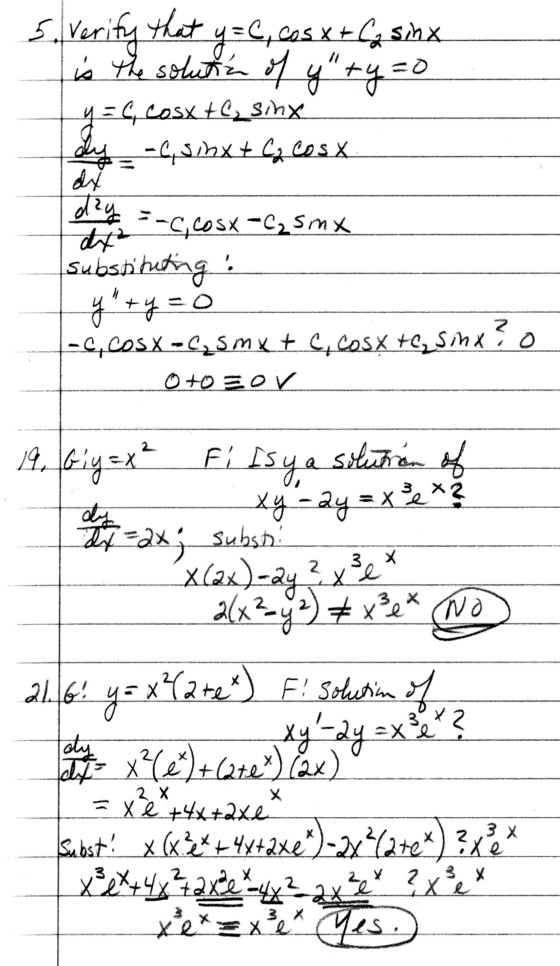 5. Verify that y = C₁ cos x + C₂ sin x
is the solution of y'' + y = 0
y = C₁ cos x + C₂ sin x
dy/dx = -C₁ sin x + C₂ cos x
d²y/dx² = -C₁ cos x - C₂ sin x
substituting :
y'' + y = 0
-C₁ cos x - C₂ sin x + C₁ cos x + C₂ sin x ? 0
0 + 0 ≡ 0 ✓
19. G: y = x² F: Is y a solution of
xy' - 2y = x³eˣ ?
dy/dx = 2x; subst:
x(2x) - 2y ? x³eˣ
2(x² - y²) ≠ x³eˣ No
21. G: y = x²(2+eˣ) F: Solution of
xy' - 2y = x³eˣ ?
dy/dx = x²(eˣ) + (2+eˣ)(2x)
= x²eˣ + 4x + 2xeˣ
Subst: x(x²eˣ + 4x + 2xeˣ) - 2x²(2+eˣ) ? x³eˣ
x³eˣ + 4x² + 2x²eˣ - 4x² - 2x²eˣ ? x³eˣ
x³eˣ ≡ x³eˣ Yes.